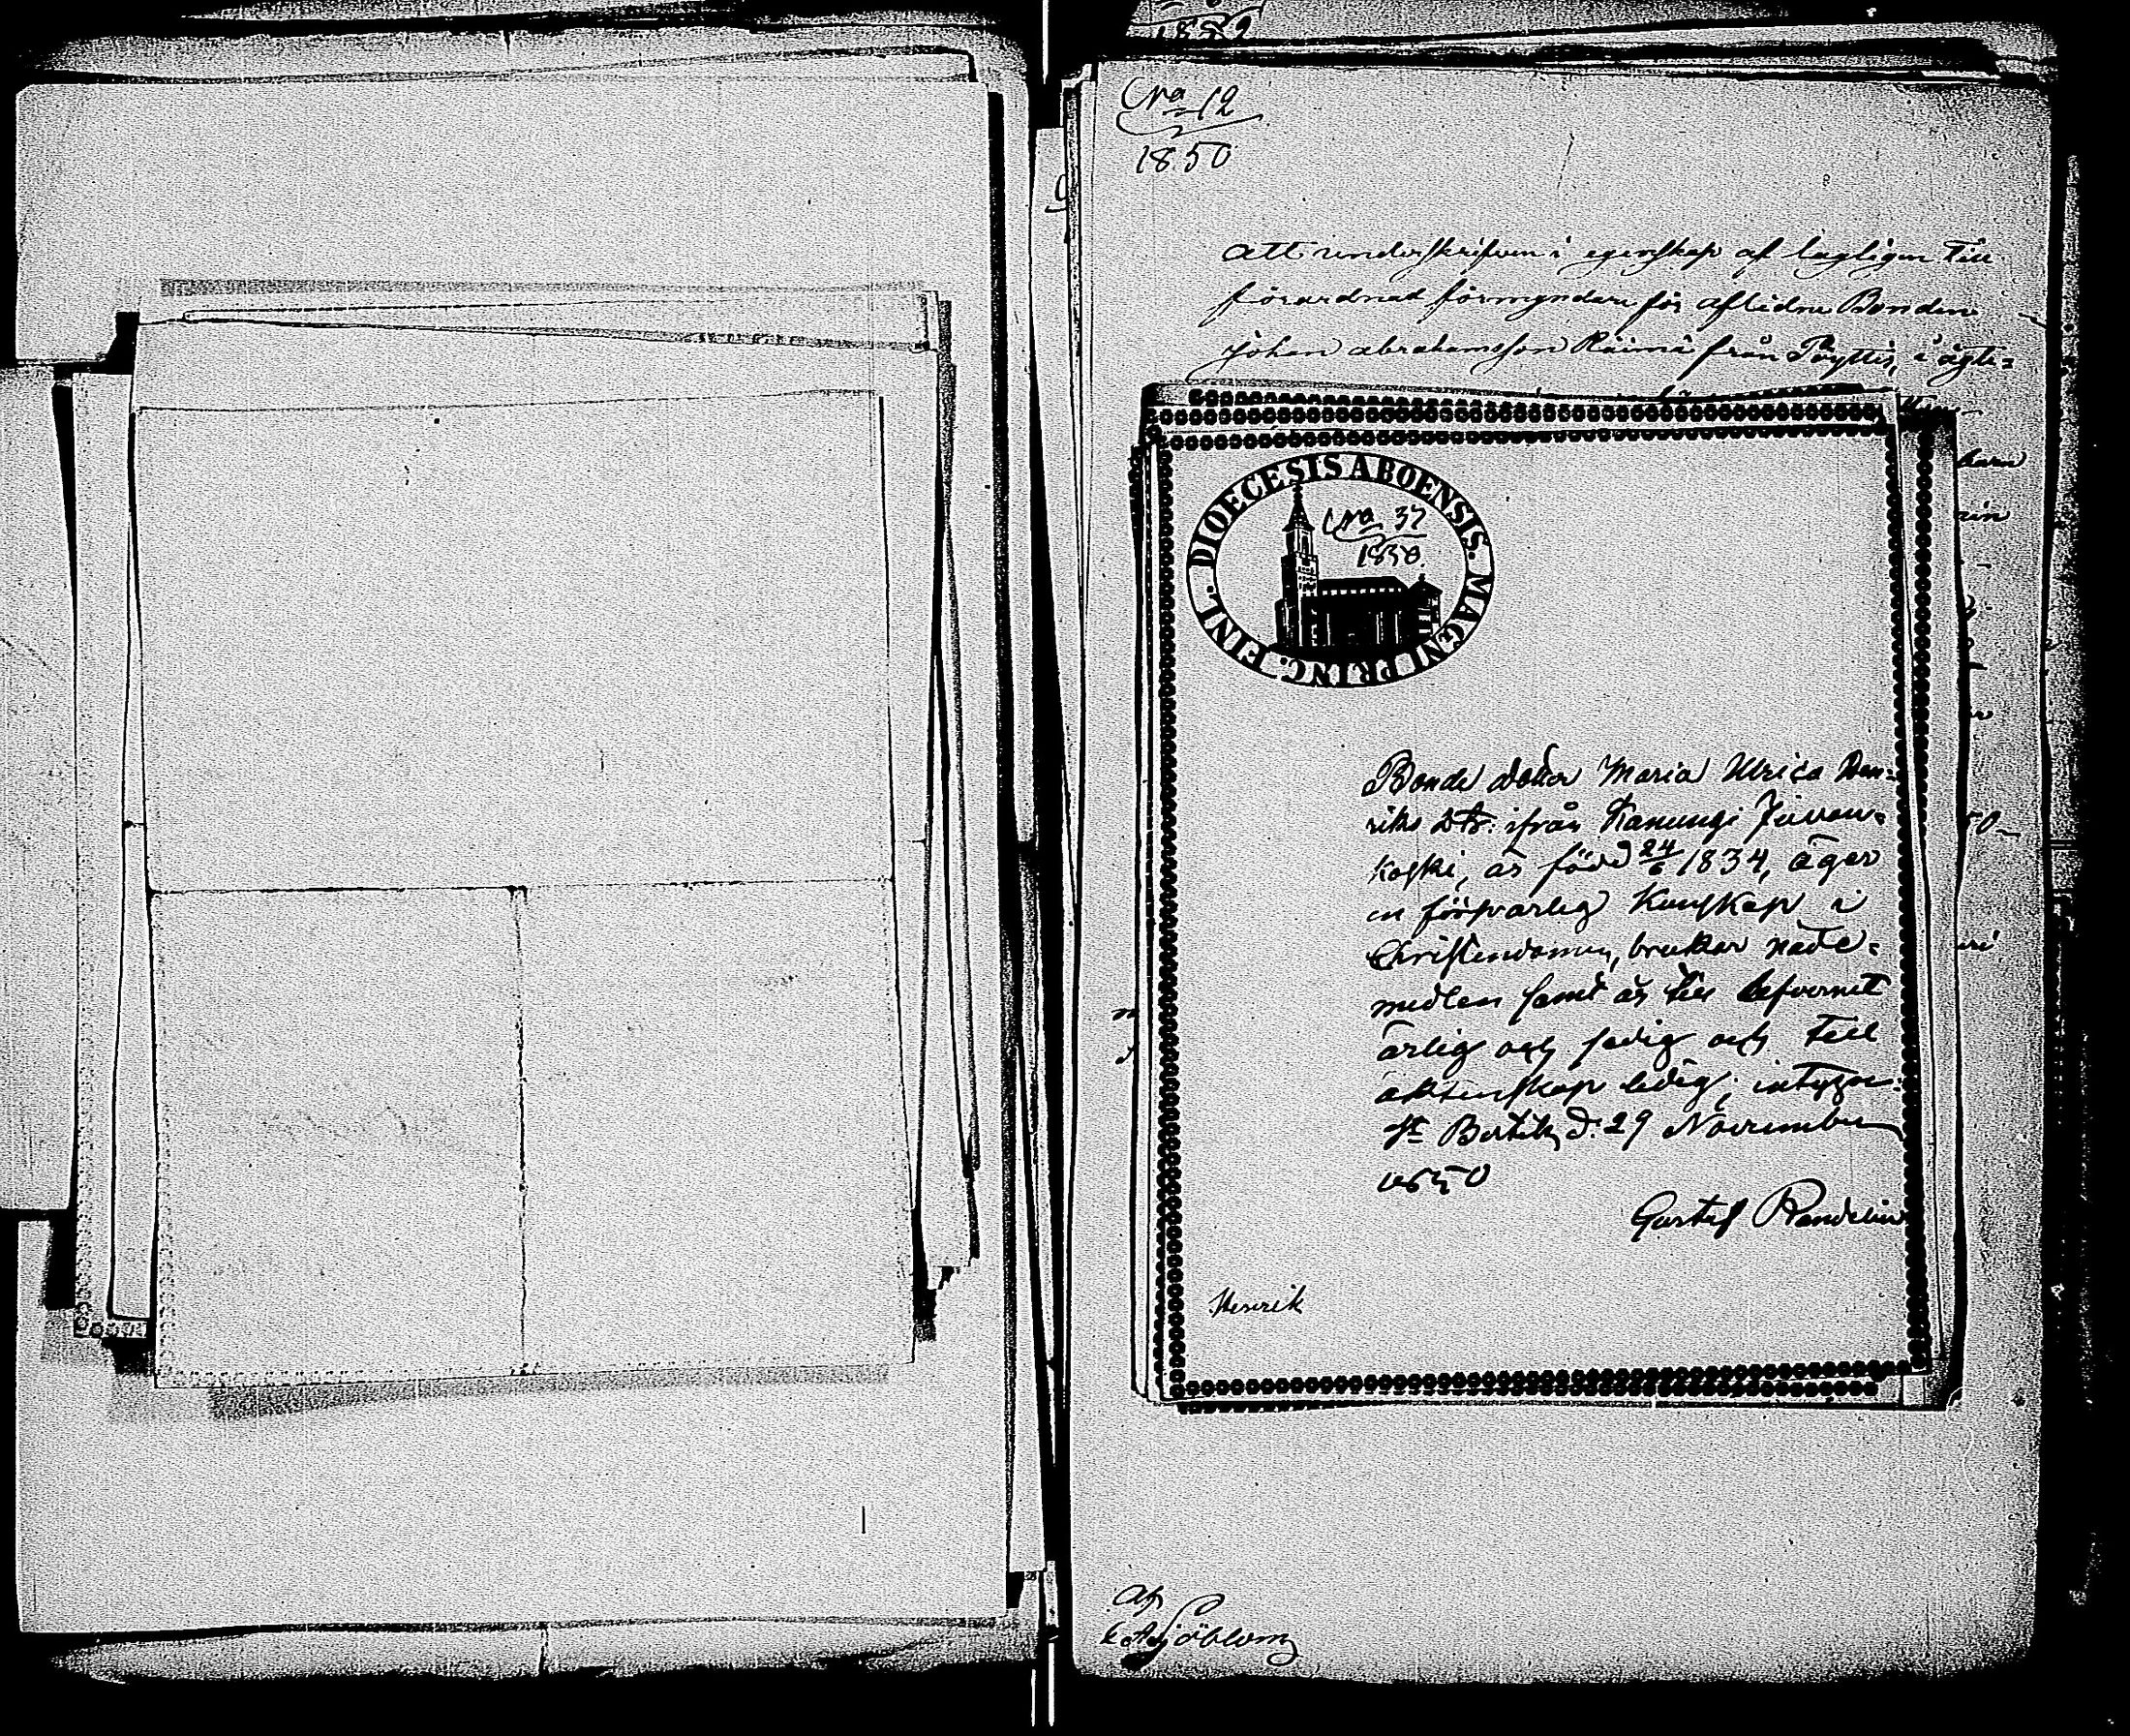 1882
No 12
1850
Att underskrifven i egenskap af lagligen till
förordnad förmyndare för aflidne Bonden
Johan Abrahamsson Räimä från Töyttis, i ägte=
DIOECESIS ABOENSIS. MAGNI PRINC. FINL.
No 37
1850.
Bonde dotter Maria Ulrica Hen=
riks Dtr: ifrån Kanungi Juvan=
koski, är född 24/6 1834, äger
en försvarlig Kunskap i
Christendomen, brukar nåde=
medlen samt är till lefvernet
ärlig och sedig och till
äktenskap ledig; intygar
St Bertils d. 29 November
1850
Gustaf Randelin
Henrik
Af
Sjöblom